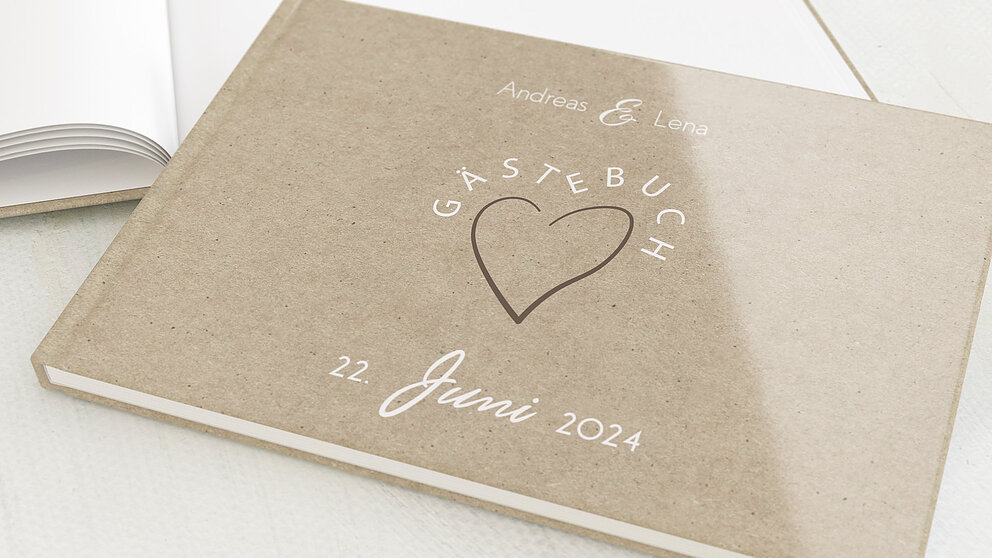 Andreas & Lena
GÄSTEBUCH
22. Juni 2024